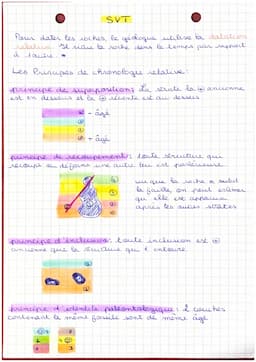 SVT
Pour dater les roches, le géologue utilise la datation
relative. Il situe la roche dans le temps par rapport
à l'autre.
Les Principes de chronologie relative:
principe de superposition: la strate la ⊕ ancienne
est en dessous et la ⊕ récente est au dessus
- âgé
+ âgé
principe de recoupement: toute structure qui
recoupe ou déforme une autre lui est postérieure
vu que la roche a subit
la faille, on peut estimer
qu'elle est apparue
après les autres strates
principe d'inclusion: toute inclusion est ⊕
ancienne que la structure qui l'entoure
principe d'identité paléontologique: 2 couches
contenant le même fossile sont de même âge